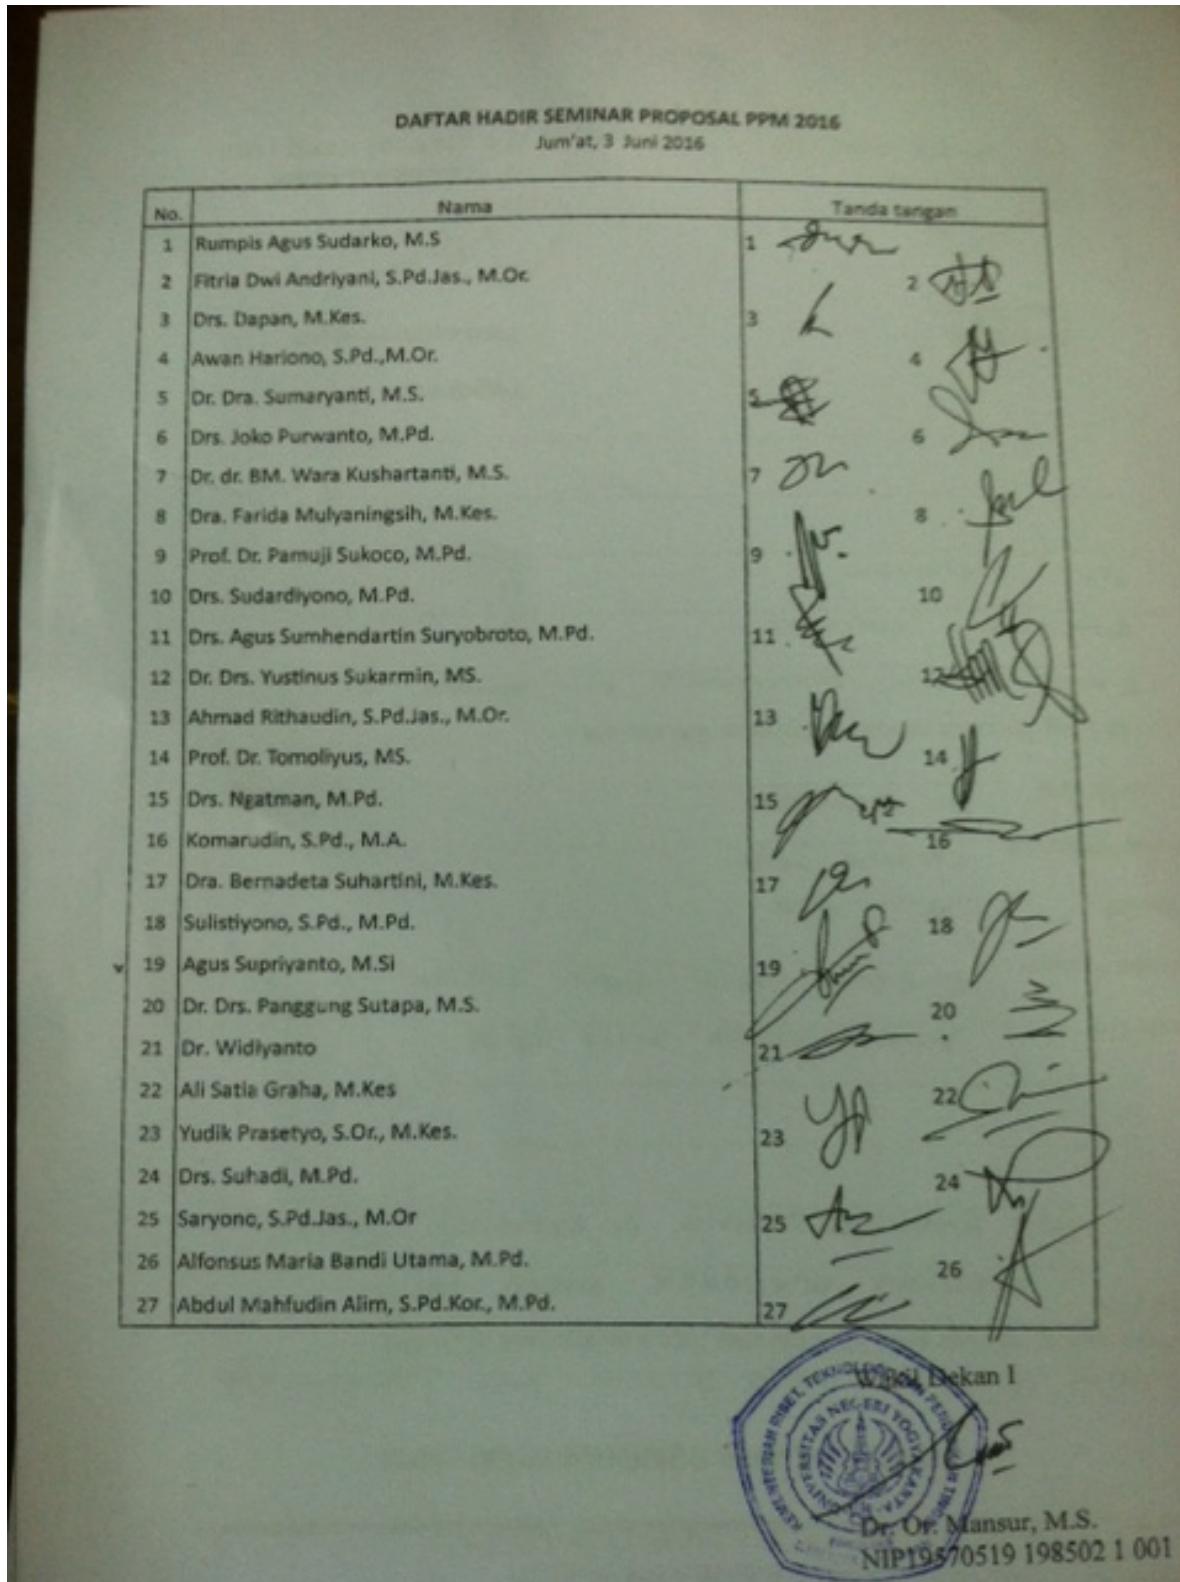 DAFTAR HADIR SEMINAR PROPOSAL PPM 2016
Jum'at, 3 Juni 2016
No. Nama Tanda tangan
1 Rumpis Agus Sudarko, M.S 1
2 Fitria Dwi Andriyani, S.Pd.Jas., M.Or. 2
3 Drs. Dapan, M.Kes. 3
4 Awan Hariono, S.Pd.,M.Or. 4
5 Dr. Dra. Sumaryanti, M.S. 5
6 Drs. Joko Purwanto, M.Pd. 6
7 Dr. dr. BM. Wara Kushartanti, M.S. 7
8 Dra. Farida Mulyaningsih, M.Kes. 8
9 Prof. Dr. Pamuji Sukoco, M.Pd. 9
10 Drs. Sudardiyono, M.Pd. 10
11 Drs. Agus Sumhendartin Suryobroto, M.Pd. 11
12 Dr. Drs. Yustinus Sukarmin, MS. 12
13 Ahmad Rithaudin, S.Pd.Jas., M.Or. 13
14 Prof. Dr. Tomoliyus, MS. 14
15 Drs. Ngatman, M.Pd. 15
16 Komarudin, S.Pd., M.A. 16
17 Dra. Bernadeta Suhartini, M.Kes. 17
18 Sulistiyono, S.Pd., M.Pd. 18
19 Agus Supriyanto, M.Si 19
20 Dr. Drs. Panggung Sutapa, M.S. 20
21 Dr. Widiyanto 21
22 Ali Satia Graha, M.Kes 22
23 Yudik Prasetyo, S.Or., M.Kes. 23
24 Drs. Suhadi, M.Pd. 24
25 Saryono, S.Pd.Jas., M.Or 25
26 Alfonsus Maria Bandi Utama, M.Pd. 26
27 Abdul Mahfudin Alim, S.Pd.Kor., M.Pd. 27
Wakil Dekan I
KEMENTERIAN RISET, TEKNOLOGI DAN PENDIDIKAN TINGGI
UNIVERSITAS NEGERI YOGYAKARTA
Dr. Or. Mansur, M.S.
NIP19570519 198502 1 001